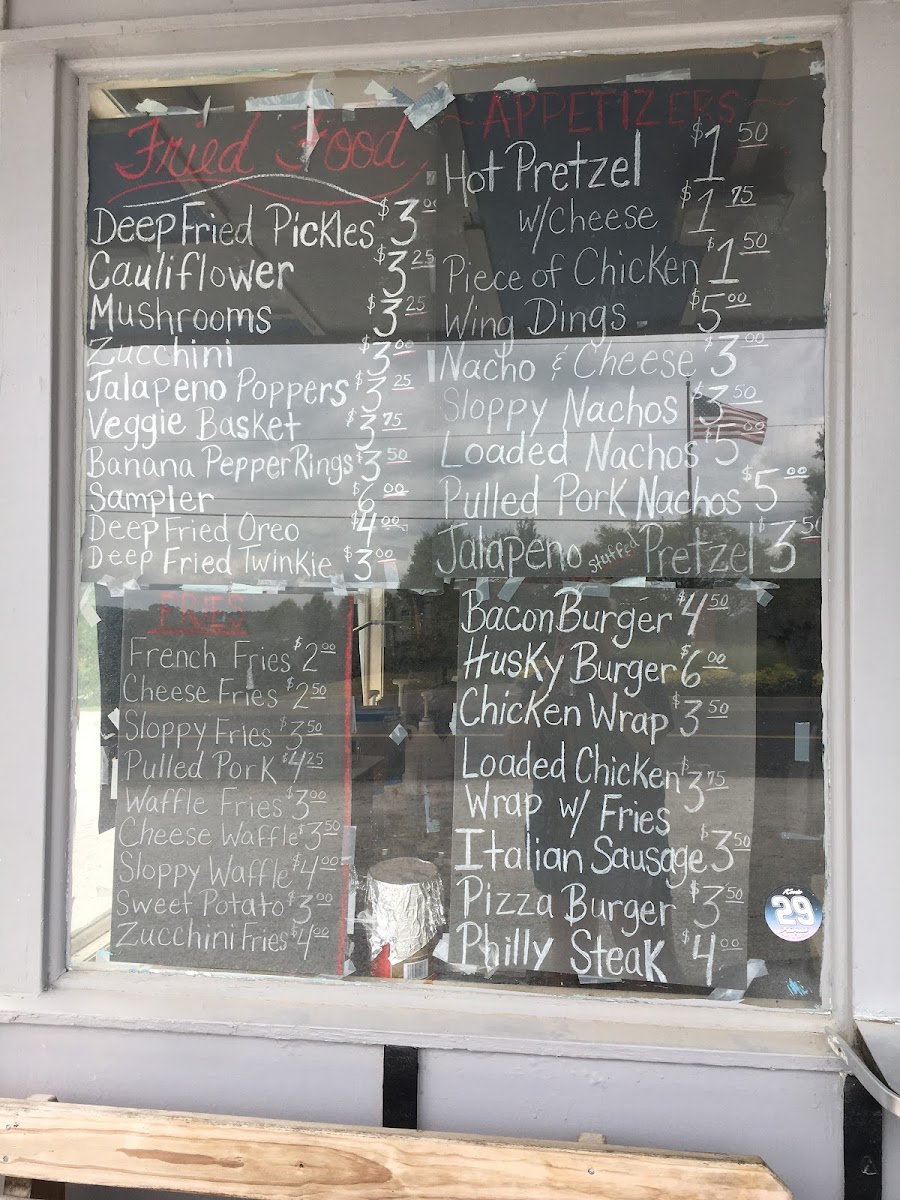 Fried Food
Deep Fried Pickles $3.00
Cauliflower $3.25
Mushrooms $3.25
Zucchini $3.00
Jalapeno Poppers $3.25
Veggie Basket $3.75
Banana Pepper Rings $3.50
Sampler $6.00
Deep Fried Oreo $4.00
Deep Fried Twinkie $3.00
~ APPETIZERS ~
Hot Pretzel $1.50
w/Cheese $1.75
Piece of Chicken $1.50
Wing Dings $5.00
Nacho & Cheese $3.00
Sloppy Nachos $3.50
Loaded Nachos $5.00
Pulled Pork Nachos $5.00
Jalapeno stuffed Pretzel $3.50
FRIES
French Fries $2.00
Cheese Fries $2.50
Sloppy Fries $3.50
Pulled Pork $4.25
Waffle Fries $3.00
Cheese Waffle $3.50
Sloppy Waffle $4.00
Sweet Potato $3.00
Zucchini Fries $4.00
Bacon Burger $4.50
Husky Burger $6.00
Chicken Wrap $3.50
Loaded Chicken $3.75
Wrap w/ Fries
Italian Sausage $3.50
Pizza Burger $3.50
Philly Steak $4.00
29